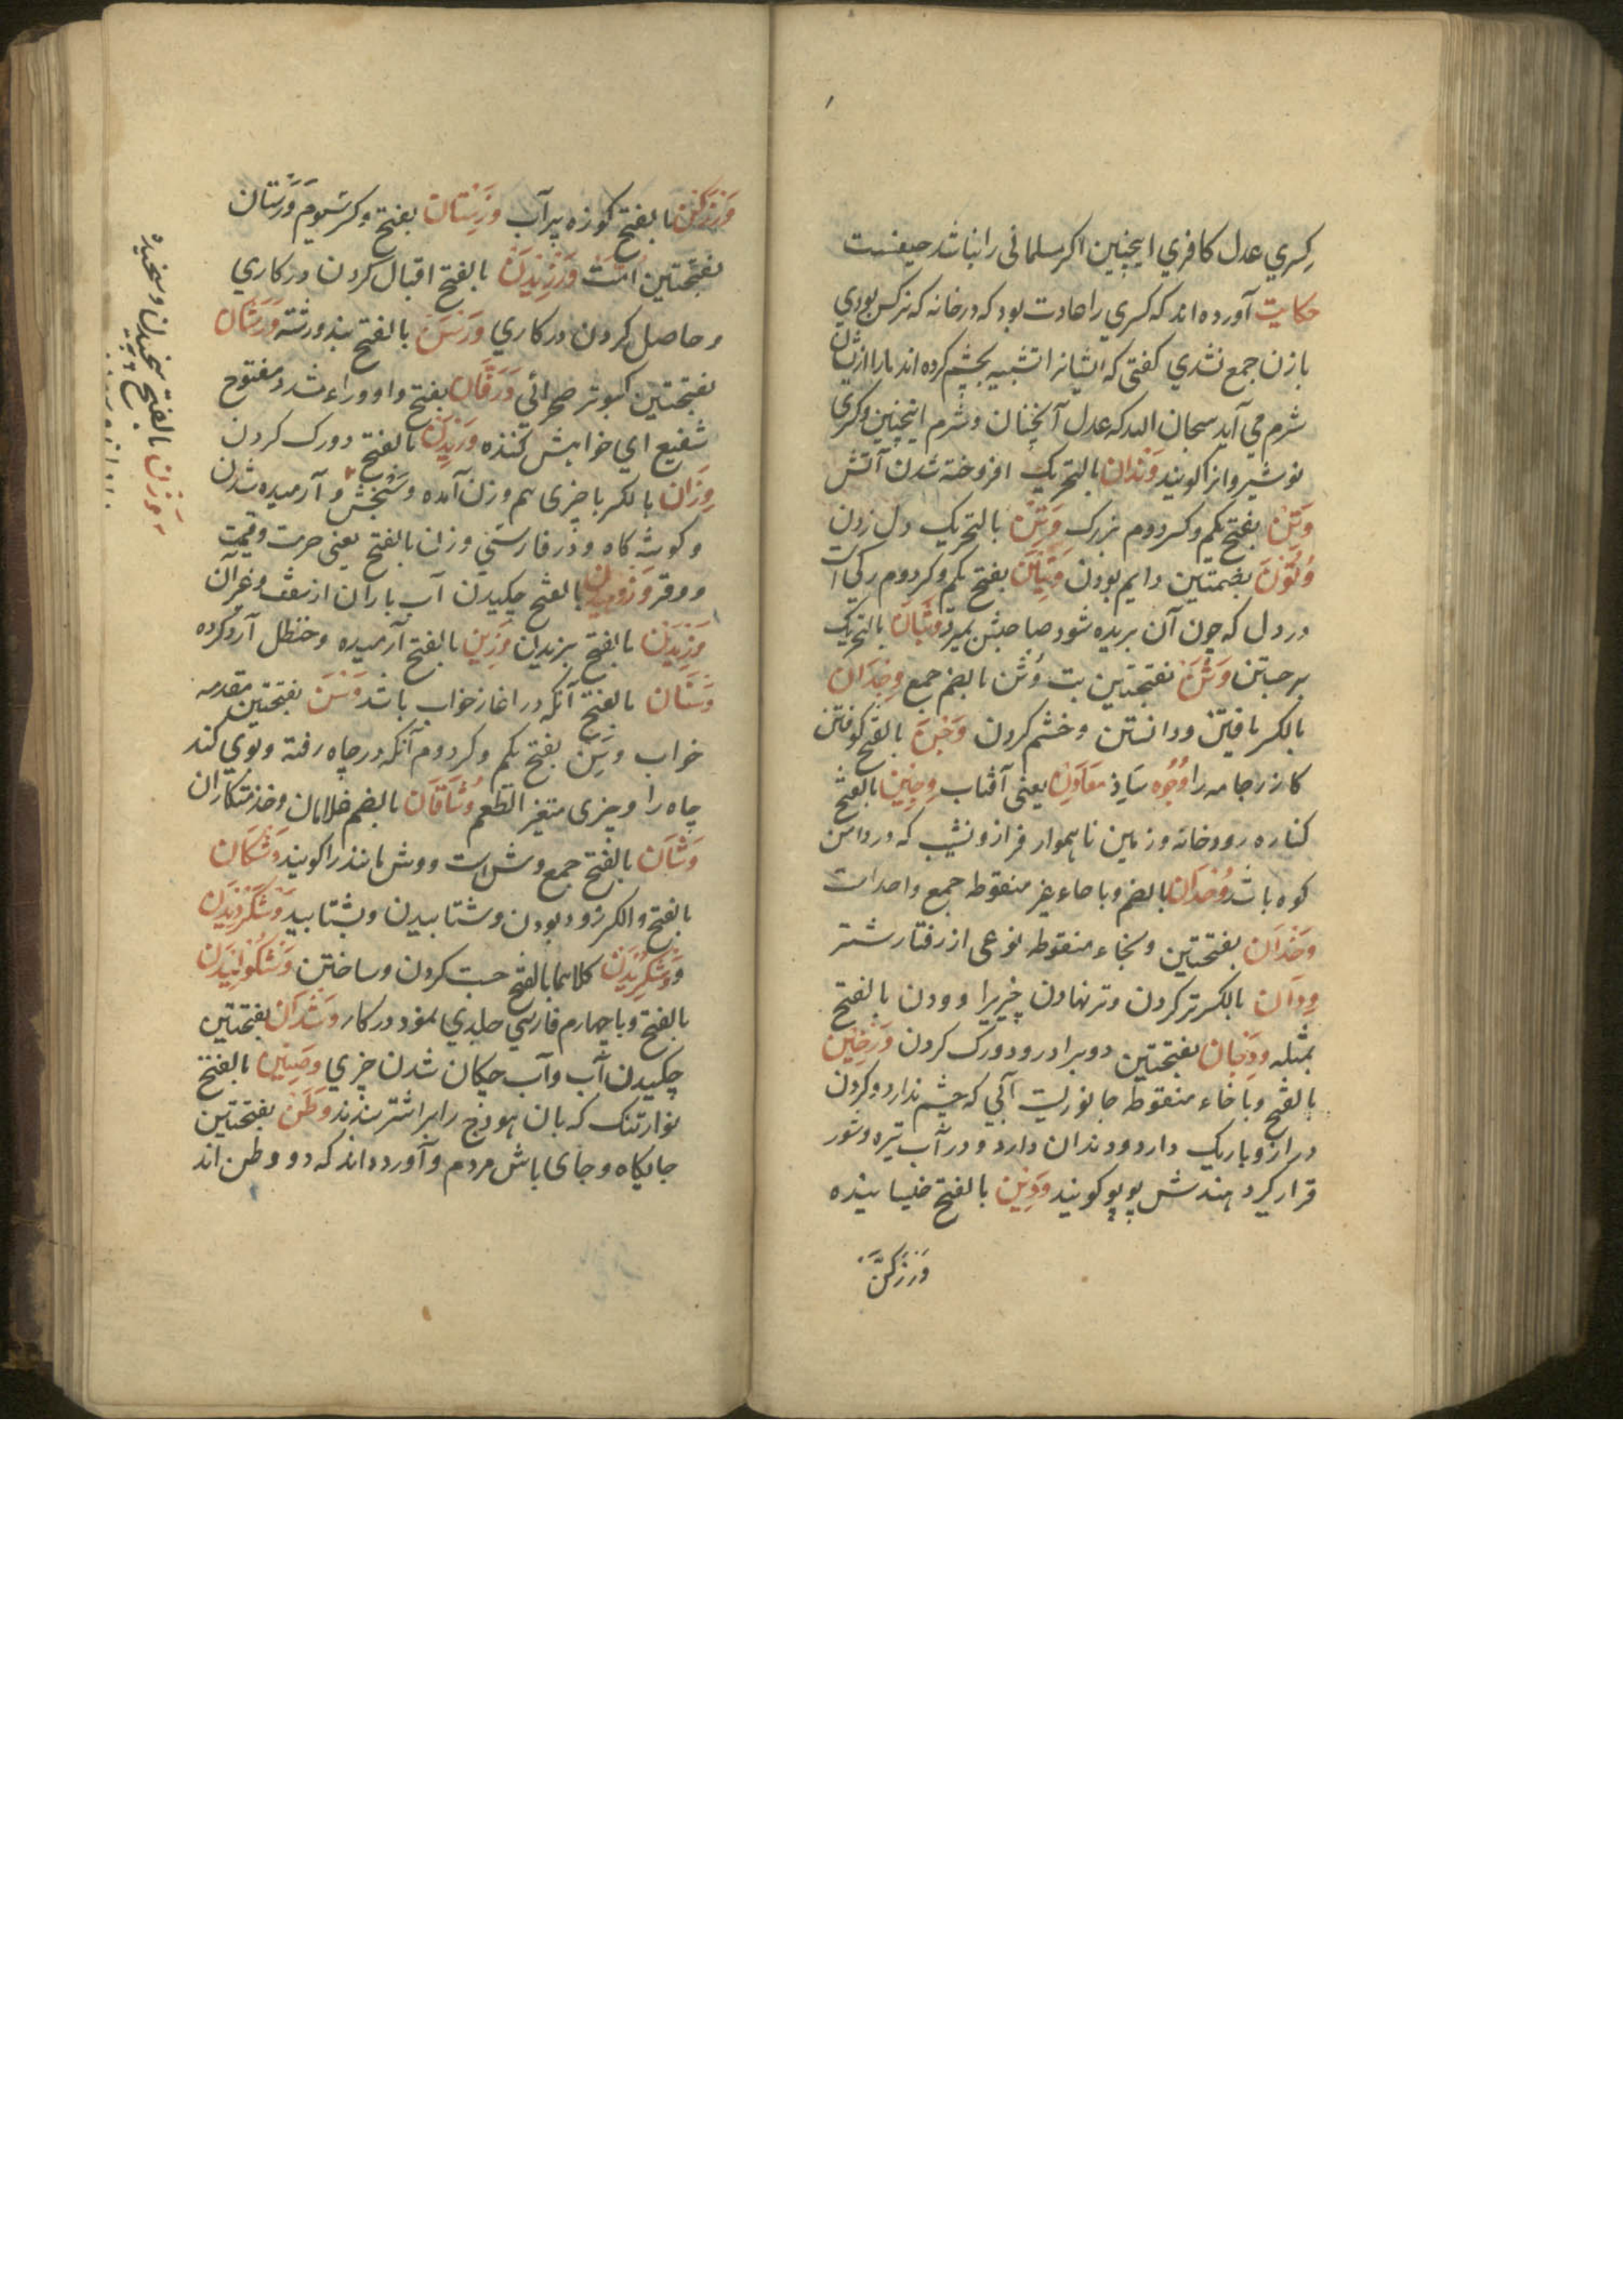 کسري عدل کافري اینچنین اکر مسلمانی را نباشد حیفست
حکایت آورده اند که کسري را عادت بود که در خانه که نرکس بودي
با زن جمع نشدي کفتی که ایشانرا تشبیه بچشم کرده اند ما را ازیشان
شرم می آید سبحان الله که عدل آنچنان و شرم اینچنین و کسری
نوشیروانرا کویند وَندان بالتحریک افروخته شدن آتش
وَتِنْ بفتح یکم و کسر دوم بزرک وَتَنْ بالتحریک دل زدن
وُتُوْنَ بضمتین دایم بودن وَتِیْن بفتح یکم و کسر دوم رکی است
در دل که چون آن بریده شود صاحبش بمیرد وَثَبَان بالتحریک
برجستن وَثَنْ بفتحتین بت وُثن بالضم جمع وِجْدَان
بالکسر یافتن و دانستن و خشم کردن وَجْنْ بالفتح کوفتن
کازر جامه را وجوه یعنی آفتاب وَجِیْن بالفتح
کناره رودخانه و زمین ناهموار فراز و نشیب که در دامن
کوه باشد وُحْدَان بالضم و با حاء غیر منقوطه جمع واحد است
وَخَدَان بفتحتین و بخاء منقوطه نوعی از رفتار شتر
وِدَان بالکسر تر کردن و تر نهادن چیزیرا و ودن بالفتح
بمثله وَدَجَان بفتحتین دو برادر و دو رک کردن
بالفتح و با خاء منقوطه جانوریست آبی که چشم ندارد و کردن
دراز و باریک دارد و دندان دارد و در آب تیره و شور
قرار کیرد هندش کویند وَدِیْن بالفتح خیسانیده
بالفتح کوزه پر آب وَرَستان بفتح و کسر سیوم وَرستان
بفتحتین امت وَرْزِیْدَن بالفتح اقبال کردن در کاري
و حاصل کردن در کاري وَرْسَنْ بالفتح بند و رشته وَرَشَان
بفتحتین کبوتر صحرائي وَرَقَان بفتح واو و راء مشدد مفتوح
شفیع اي خواهش کننده وَرِیْدَنْ بالفتح دو رک کردن
وِزَان بالکسر با چیزی هم وزن آمده و سنجش و آرمیده شدن
و کوشه کاه و در فارسي وزن بالفتح یعنی حرمت و قیمت
و وقر بالفتح چکیدن آب باران از سقف و غیر آن
وَزِیْدَن بالفتح بزیدن وَزِین بالفتح آرمیده و حنظل آرد کرده
وَسْنَان بالفتح آنکه در اغاز خواب باشد وَسَنَ بفتحتین مقدمه
خواب وسِنْ بفتح یکم و کسر دوم آنکه در چاه رفته و بوی کند
چاه را و چیزی متغیر الطعم وُشَاقَان بالضم غلامان و خدمتکاران
وَشَان بالفتح جمع وش است و وش مانند را کویند وَشْکَان
بالفتح و الکسر زود بودن و شتابیدن و بشتابید وَشْکَرْدِیْدَن
وَشْکَرِیْدَن کلاهما بالفتح جست کردن و ساختن
بالفتح و با چهارم فارسي جلدي نمود در کار وَشَلَان بفتحتین
چکیدن آب و آب چکان شدن چیزي وَضِیْن بالفتح
نوار تنک که بان هودج را بر اشتر بندند وَطَنْ بفتحتین
جایکاه و جای باش مردم و آورده اند که دو وطن اند
وَزن بالفتح سنجیدن و سنجیده